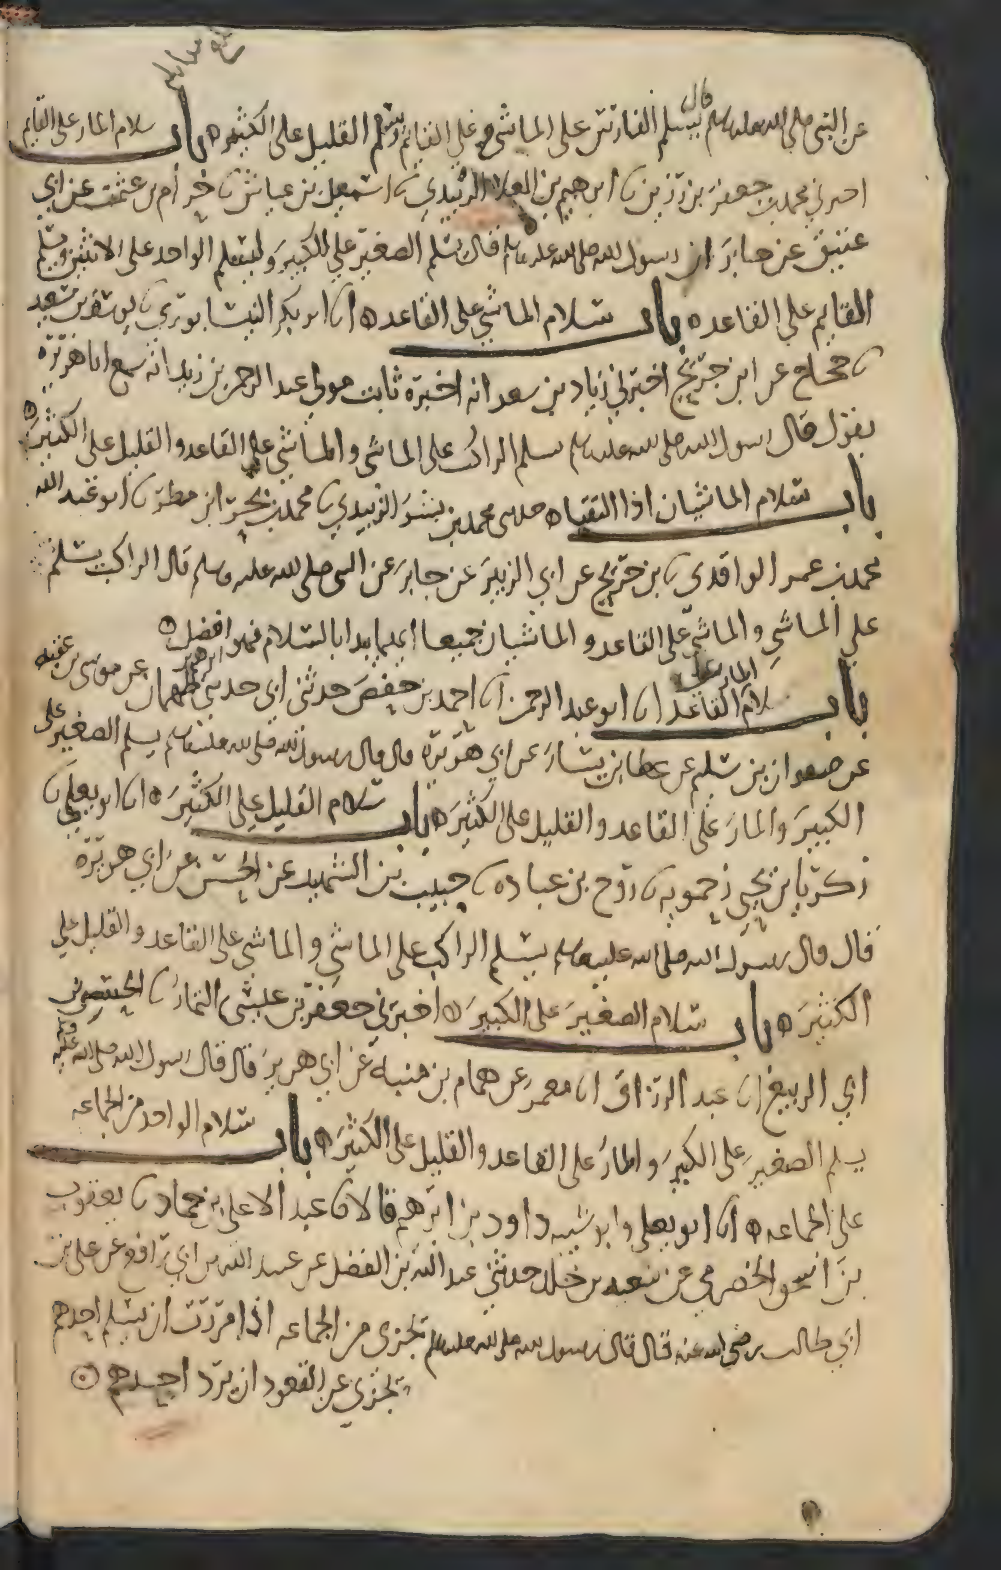 عن النبي صلى الله عليه وسلم قال يسلم الفارس على الماشي وعلى القايم ويسلم القليل على الكثير ه باب سلام المار على القايم
اخبرني محمد بن جعفر بن رزين ابرهيم بن العلا الزبيدي اسمعيل بن عياش عن ابي
عتيق عن جابر ان رسول الله صلى الله عليه وسلم قال يسلم الصغير على الكبير وليسلم الواحد على الاثنين ويسلم
القايم على القاعد ه باب سلام الماشي على القاعد ه انا ابو بكر النيسابوري يوسف بن سعيد
حجاج عن ابن جريج اخبرني زياد بن سعد انه اخبره ثابت مولى عبد الرحمن بن زيد انه سمع ابا هريرة
يقول قال رسول الله صلى الله عليه وسلم يسلم الراكب على الماشي والماشي على القاعد والقليل على الكثير ه
باب سلام الماشيان اذا التقيا ه حدثني محمد بن بشر الزبيدي محمد بن بحر بن مطر ابو عبد الله
محمد بن عمر الواقدي بن جريج عن ابي الزبير عن جابر عن النبي صلى الله عليه وسلم قال الراكب يسلم
على الماشي والماشي على القاعد والماشيان جميعا ايهما بدا بالسلام فهو افضل ه
باب سلام المار على القاعد انا ابو عبد الرحمن انا احمد بن حفص حدثني ابي حدثني ابرهيم بن طهمان عن موسى بن عقبه
عن صفوان بن سليم عن عطا بن يسار عن ابي هريرة قال قال رسول الله صلى الله عليه وسلم يسلم الصغير على
الكبير والمار على القاعد والقليل على الكثير ه باب سلام القليل على الكثير ه انا ابو يعلى
زكريا بن يحيى زحمويه روح بن عباده حبيب بن الشهيد عن الحسن عن ابي هريرة
قال قال رسول الله صلى الله عليه وسلم يسلم الراكب على الماشي والماشي على القاعد والقليل على
الكثير ه باب سلام الصغير على الكبير ه اخبرني جعفر بن عيسى التمار الحسن بن
ابي الربيع انا عبد الرزاق انا معمر عن همام بن منبه عن ابي هرير قال قال رسول الله صلى الله عليه وسلم
يسلم الصغير على الكبير والمار على القاعد والقليل على الكثير ه باب سلام الواحد من الجماعه
على الجماعه ه انا ابو يعلى وابو شيبه داود بن ابرهيم قالا عبد الاعلى بن حماد يعقوب
بن اسحق الحضرمي عن سعيد بن خلد حدثني عبد الله بن الفضل عن عبيد الله بن ابي رافع عن علي بن
ابي طالب رضي الله عنه قال قال رسول الله صلى الله عليه وسلم تجزي من الجماعه اذا مرت ان يسلم احدهم
وتجزي عن القعود ان يرد احدهم ه